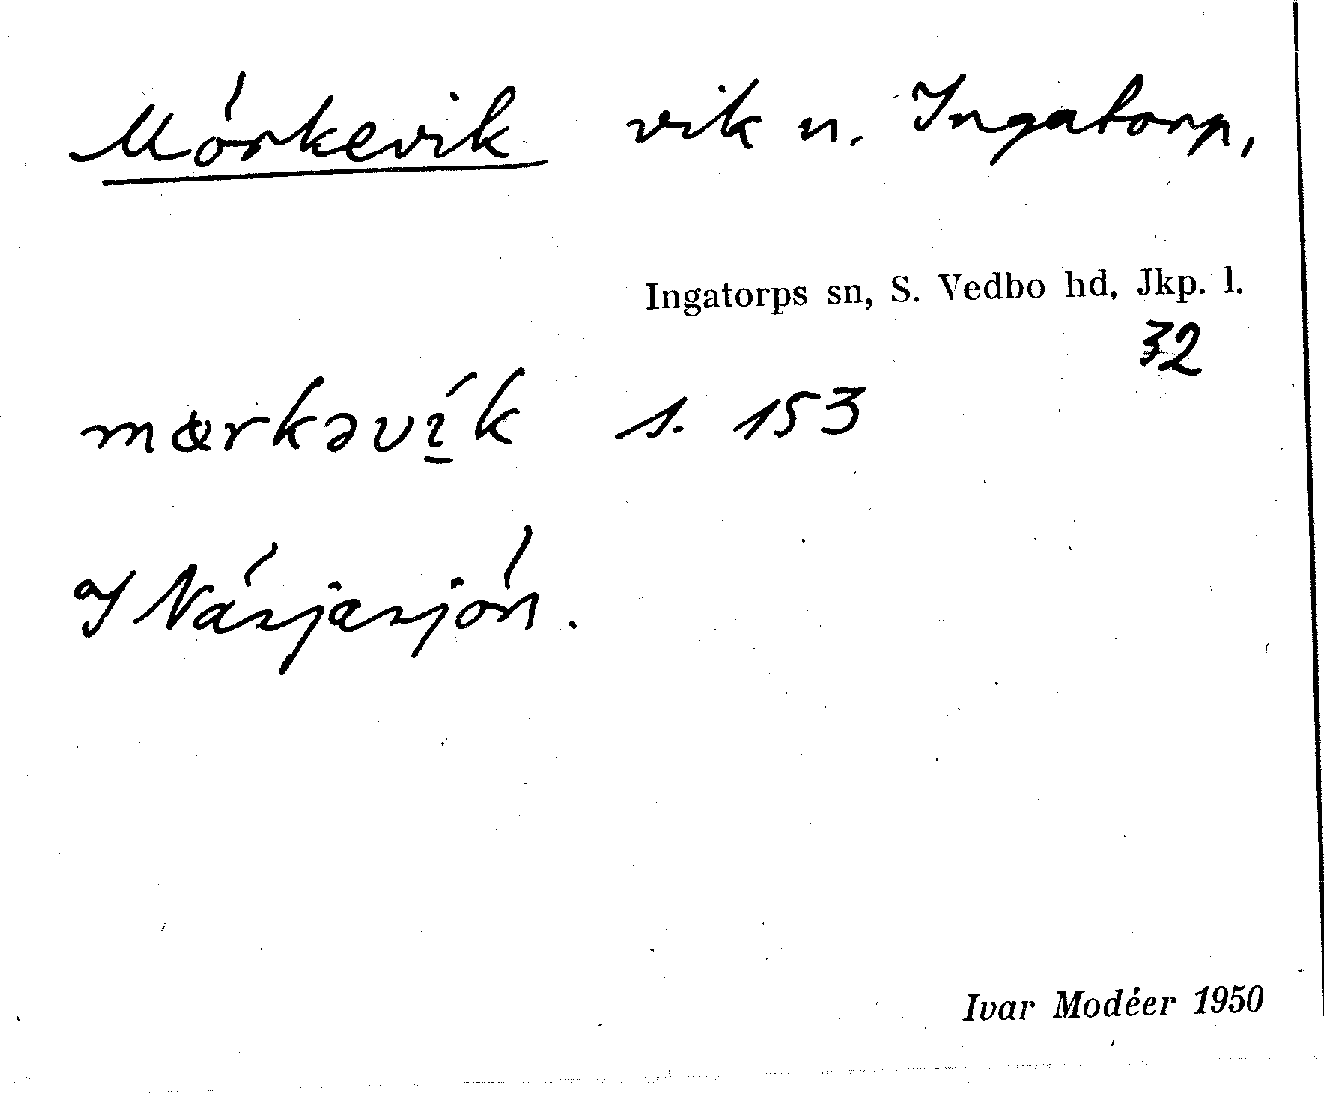 Mörkevik vik n. Ingatorp,
Ingatorps sn, S. Vedbo hd, Jkp. l.
32
mœrkəvík s. 153
I Näsjasjön.
Ivar Modéer 1950